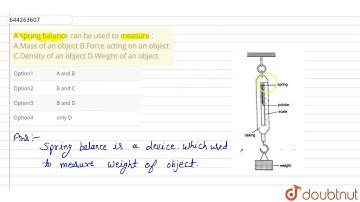 644263607
A spring balance can be used to measure :
A.Mass of an object B.Force acting on an object
C.Density of an object D.Weight of an object
Option1 A and B
Option2 B and C
Option3 B and D
Option4 only D
Ans:-
Spring balance is a device. which used
to measure weight of object.
spring
pointer
scale
casing
weight
doubtnut